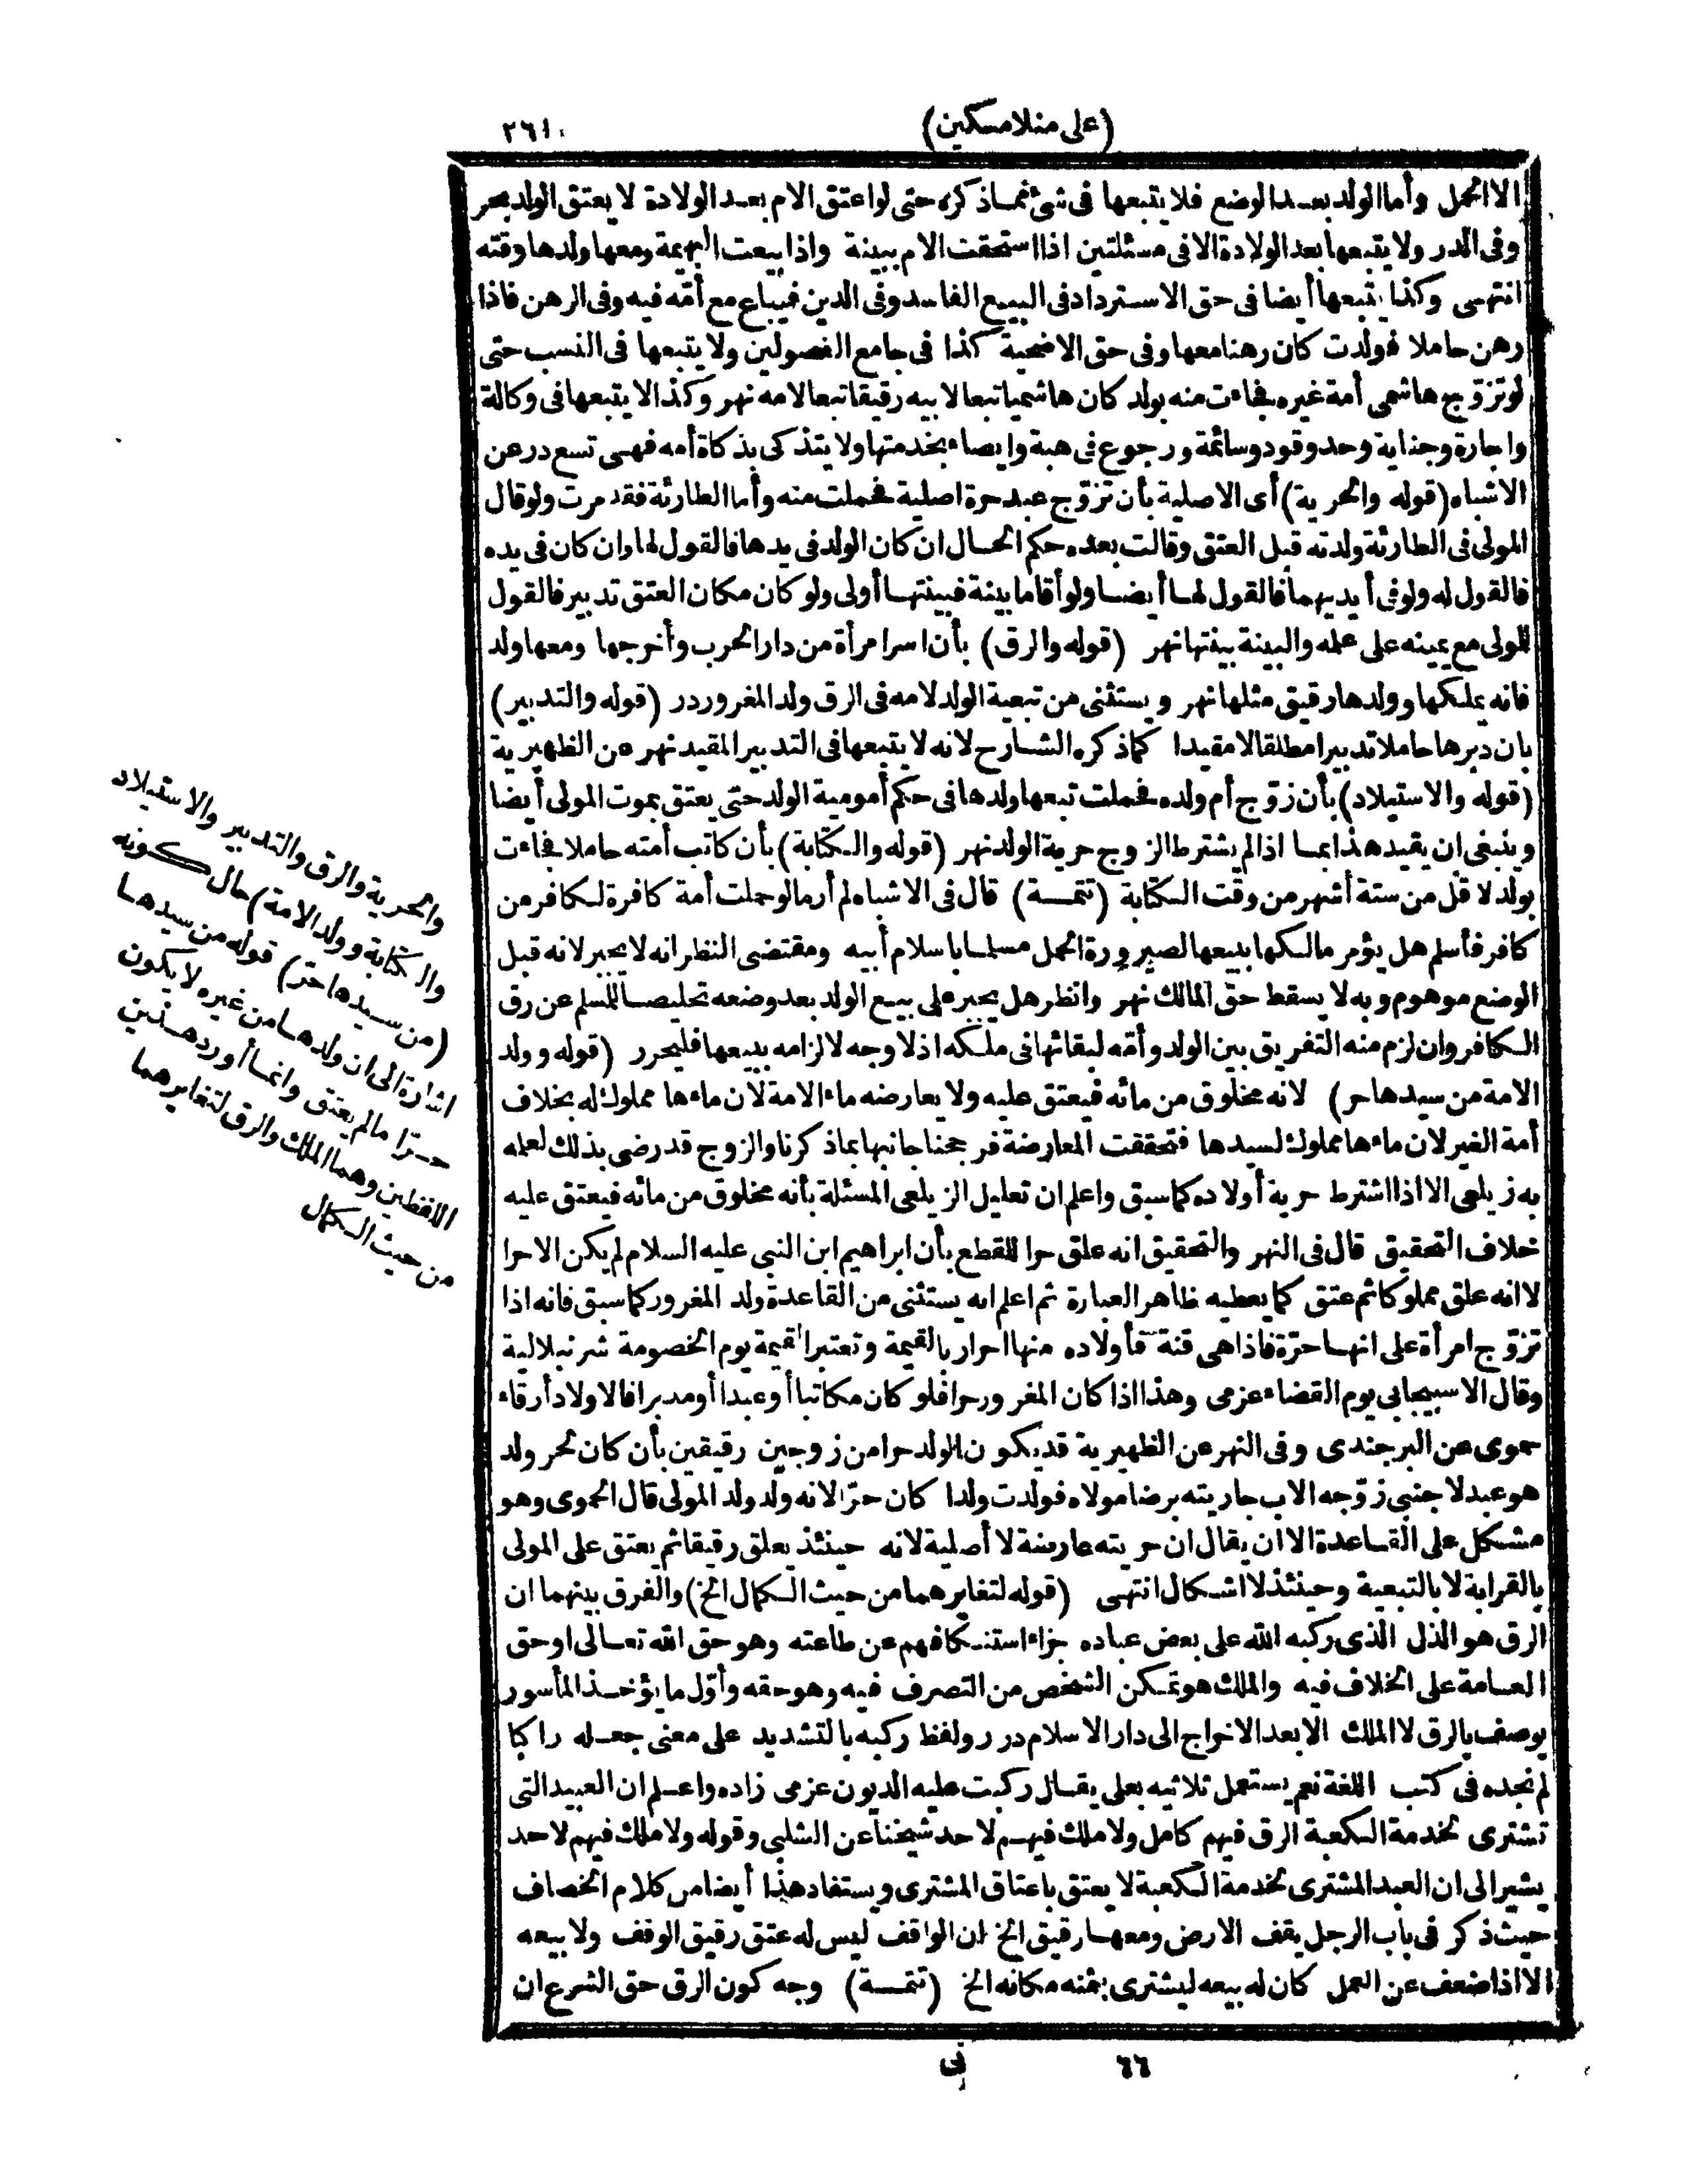 (على منلا مسكين)
٣٦١
الا الحمل وأما الولد بعد الوضع فلا يتبعها فى شئ مما ذكره حتى لو اعتق الام بعد الولادة لا يعتق الولد بحر
وفى الدر ولا يتبعها بعد الولادة الا فى مسئلتين اذا استحقت الام ببينة واذا بيعت البهيمة ومعها ولدها وقته
انتهى وكذا يتبعها أيضا فى حق الاسترداد فى البيع الفاسد وفى الدين فيباع مع أمّه فيه وفى الرهن فاذا
رهن حاملا فولدت كان رهنا معها وفى حق الاضحية كذا فى جامع الفصولين ولا يتبعها فى النسب حتى
لو تزوّج هاشمى أمة غيره فجاءت منه بولد كان هاشميا تبعا لابيه رقيقا تبعا لامه نهر وكذا لا يتبعها فى وكالة
واجارة وجناية وحد وقود وسائمة ورجوع فى هبة وايصاء بخدمتها ولا يتذكى بذكاة أمه فهى تسع در عن
الاشباه (قوله والحرية) أى الاصلية بأن تزوّج عبد حرة اصلية فحملت منه وأما الطارئة فقد مرت ولو قال
المولى فى الطارئة ولدته قبل العتق وقالت بعده حكم الحال ان كان الولد فى يدها فالقول لها وان كان فى يده
فالقول له ولو فى أيديهما فالقول لها أيضا ولو أقاما بينة فبينتها أولى ولو كان مكان العتق تدبير فالقول
للمولى مع يمينه على علمه والبينة بينتها نهر (قوله والرق) بأن اسر امرأة من دار الحرب وأخرجها ومعها ولد
فانه يملكها وولدها رقيق مثلها نهر ويستثنى من تبعية الولد لامه فى الرق ولد المغرور در (قوله والتدبير)
بان دبرها حاملا تدبيرا مطلقا لا مقيدا كما ذكره الشارح لانه لا يتبعها فى التدبير المقيد نهر عن الظهيرية
(قوله والاستيلاد) بأن زوّج أم ولده فحملت تبعها ولدها فى حكم أمومية الولد حتى يعتق بموت المولى أيضا
وينبغى ان يقيد هذا بما اذا لم يشترط الزوج حرية الولد نهر (قوله والكتابة) بأن كاتب أمته حاملا فجاءت
بولد لاقل من ستة أشهر من وقت الكتابة (تتمة) قال فى الاشباه لم أر ما لو حملت أمة كافرة لكافر من
كافر فأسلم هل يؤمر مالكها ببيعها لصيرورة الحمل مسلما باسلام أبيه ومقتضى النظر انه لا يجبر لانه قبل
الوضع موهوم وبه لا يسقط حق المالك نهر وانظر هل يجبر على بيع الولد بعد وضعه تخليصا للمسلم عن رق
الكافر وان لزم منه التفريق بين الولد وأمّه لبقائها فى ملكه اذ لا وجه لالزامه ببيعها فليحرر (قوله وولد
الامة من سيدها حر) لانه مخلوق من مائه فيعتق عليه ولا يعارضه ماء الامة لان ماءها مملوك له بخلاف
أمة الغير لان ماءها مملوك لسيدها فتحققت المعارضة فرجحنا جانبها بما ذكرنا والزوج قد رضى بذلك لعلمه
به زيلعى الا اذا اشترط حرية أولاده كما سبق واعلم ان تعليل الزيلعى المسئلة بأنه مخلوق من مائه فيعتق عليه
خلاف التحقيق قال فى النهر والتحقيق انه علق حرا للقطع بأن ابراهيم ابن النبى عليه السلام لم يكن الا حرا
لا انه علق مملوكا ثم عتق كما يعطيه ظاهر العبارة ثم اعلم انه يستثنى من القاعدة ولد المغرور كما سبق فانه اذا
تزوّج امرأة على انها حرّة فاذا هى قنة فأولاده منها احرار بالقيمة وتعتبر القيمة يوم الخصومة شرنبلالية
وقال الاسبيجابى يوم القضاء عزمى وهذا اذا كان المغرور حرا فلو كان مكاتبا أو عبدا أو مدبرا فالاولاد أرقاء
حموى عن البرجندى وفى النهر عن الظهيرية قد يكون الولد حرا من زوجين رقيقين بأن كان لحر ولد
هو عبد لاجنبى زوّجه الاب جاريته برضا مولاه فولدت ولدا كان حرّا لانه ولد ولد المولى قال الحموى وهو
مشكل على القاعدة الا ان يقال ان حريته عارضة لا أصلية لانه حينئذ يعلق رقيقا ثم يعتق على المولى
بالقرابة لا بالتبعية وحينئذ لا اشكال انتهى (قوله لتغايرهما من حيث الكمال الخ) والفرق بينهما ان
الرق هو الذل الذى ركبه الله على بعض عباده جزاء استنكافهم عن طاعته وهو حق الله تعالى او حق
العامة على الخلاف فيه والملك هو تمكن الشخص من التصرف فيه وهو حقه وأوّل ما يؤخذ المأسور
يوصف بالرق لا الملك الا بعد الاخراج الى دار الاسلام درر ولفظ ركبه بالتشديد على معنى جعله راكبا
لم نجده فى كتب اللغة نعم يستعمل ثلاثيه بعلى يقال ركبت عليه الديون عزمى زاده واعلم ان العبيد التى
تشترى لخدمة الكعبة الرق فيهم كامل ولا ملك فيهم لاحد شيخنا عن الشلبى وقوله ولا ملك فيهم لاحد
يشير الى ان العبد المشترى لخدمة الكعبة لا يعتق باعتاق المشترى ويستفاد هذا أيضا من كلام الخصاف
حيث ذكر فى باب الرجل يقف الارض ومعها رقيق الخ ان الواقف ليس له عتق رقيق الوقف ولا بيعه
الا اذا ضعف عن العمل كان له بيعه ليشترى بثمنه مكانه الخ (تتمة) وجه كون الرق حق الشرع ان
والحرية والرق والتدبير والاستيلاد
والكتابة وولد الامة) حال كونه
(من سيدها حرّ) قوله من سيدها
اشارة الى ان ولدها من غيره لا يكون
حرّا ما لم يعتق وانما أورد هذين
اللفظين وهما الملك والرق لتغايرهما
من حيث الكمال
٦٦
نى